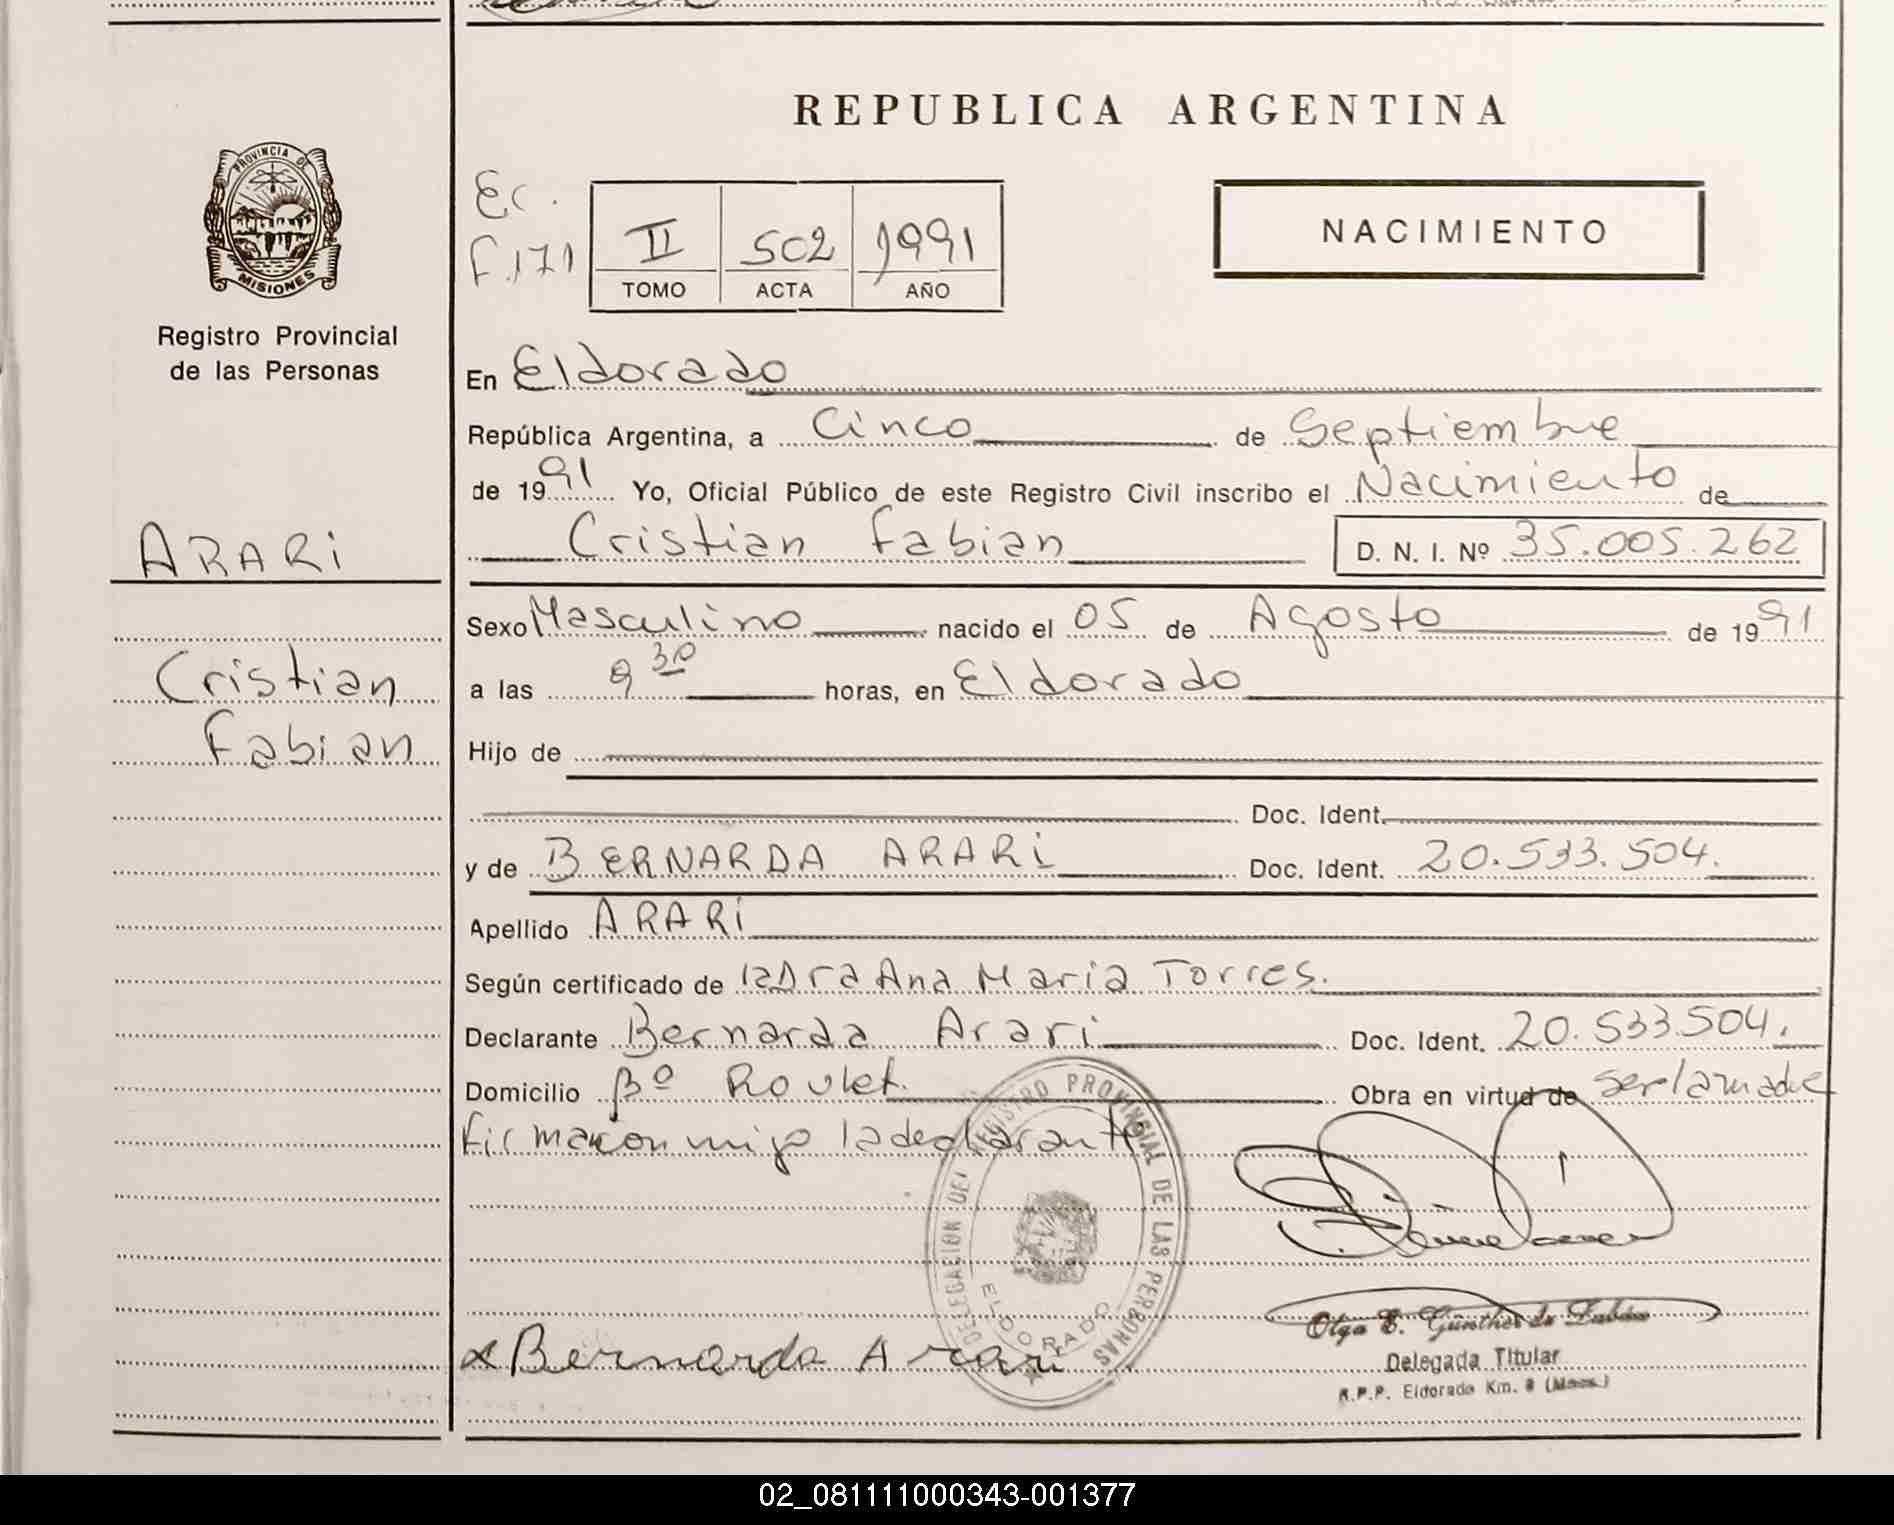 REPUBLICA ARGENTINA
PROVINCIA DE
MISIONES
Registro Provincial
de las Personas
Ec.
F.171
II 502 1991
TOMO ACTA AÑO
NACIMIENTO
En Eldorado
República Argentina, a Cinco de Septiembre
de 1991 Yo, Oficial Público de este Registro Civil inscribo el Nacimiento de
Cristian Fabian D. N. I. Nº 35.005.262
ARARi
Cristian
Fabian
Sexo Masculino nacido el 05 de Agosto de 1991
a las 9 30 horas, en Eldorado
Hijo de
Doc. Ident.
y de BERNARDA ARARi Doc. Ident. 20.533.504.
Apellido ARARi
Según certificado de la Dra Ana Maria Torres.
Declarante Bernarda Arari Doc. Ident. 20.533.504.
Domicilio Bº Roulet. Obra en virtud de ser la madre
firma con migo la declarante
DELEGACION DEL REGISTRO PROVINCIAL DE LAS PERSONAS
ELDORADO
Bernarda Arari
Olga E. Günther de
Delegada Titular
R.P.P. Eldorado Km. 9 (Mnes.)
02_081111000343-001377